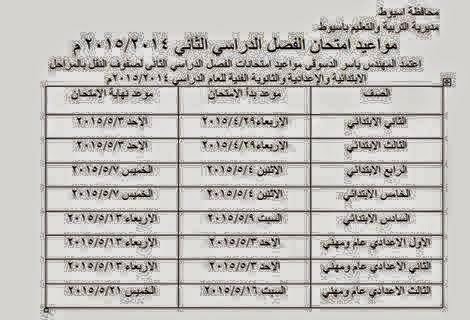 محافظة اسيوط
مديرية التربية والتعليم باسيوط
مواعيد امتحان الفصل الدراسي الثاني ٢٠١٥/٢٠١٤ م
اعتمد المهندس ياسر الدسوقي مواعيد امتحانات الفصل الدراسي الثاني لصفوف النقل بالمراحل
الابتدائية والاعدادية والثانوية الفنية للعام الدراسي ٢٠١٥/٢٠١٤م
الصف موعد بدأ الامتحان موعد نهاية الامتحان
الثاني الابتدائي الاربعاء ٢٠١٥/٤/٢٩ الاحد ٢٠١٥/٥/٣
الثالث الابتدائي الاربعاء ٢٠١٥/٤/٢٩ الاحد ٢٠١٥/٥/٣
الرابع الابتدائي الاثنين ٢٠١٥/٥/٤ الخميس ٢٠١٥/٥/٧
الخامس الابتدائي الاثنين ٢٠١٥/٥/٤ الخميس ٢٠١٥/٥/٧
السادس الابتدائي السبت ٢٠١٥/٥/٩ الاربعاء ٢٠١٥/٥/١٣
الاول الاعدادي عام ومهني الاحد ٢٠١٥/٥/٣ الاربعاء ٢٠١٥/٥/١٣
الثاني الاعدادي عام ومهني الاحد ٢٠١٥/٥/٣ الاربعاء ٢٠١٥/٥/١٣
الثالث الاعدادي عام ومهني السبت ٢٠١٥/٥/١٦ الخميس ٢٠١٥/٥/٢١